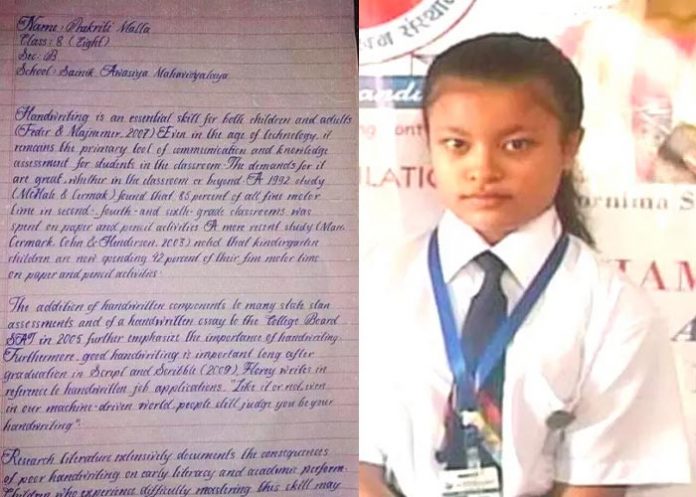 Name : Prakriti Malla
Class : 8 (Eight)
Sec : B
School : Sainik Awasiya Mahavidyalaya
Handwriting is an essential skill for both children and adults
(Feder & Majnemer, 2007) Even in the age of technology, it
remains the primary tool of communication and knowledge
assessment for students in the classroom The demands for it
are great, whether in the classroom or beyond A 1992 study
(McHale & Cermak) found that 85 percent of all fine motor
time in second-, fourth- and sixth- grade classrooms was
spent on paper and pencil activities A more recent study (Marr,
Cermark, Cohn & Henderson, 2003) noted that kindergarten
children are now spending 42 percent of their fine motor time
on paper and pencil activities
The addition of handwritten components to many state stan
assessments and of a handwritten essay to the College Board
SAT in 2005 further emphasize the importance of handwriting
Furthermore, good handwriting is important long after
graduation in Script and Scribble (2009), Florey writes in
reference to handwritten job applications, "Like it or not, even
in our machine-driven world, people still judge you by your
handwriting".
Research literature extensively documents the consequences
of poor handwriting on early literacy and academic perform
Children who experience difficulty mastering this skill may
संस्था
andi
ng ont
LATIO
urnima S
HAM
A